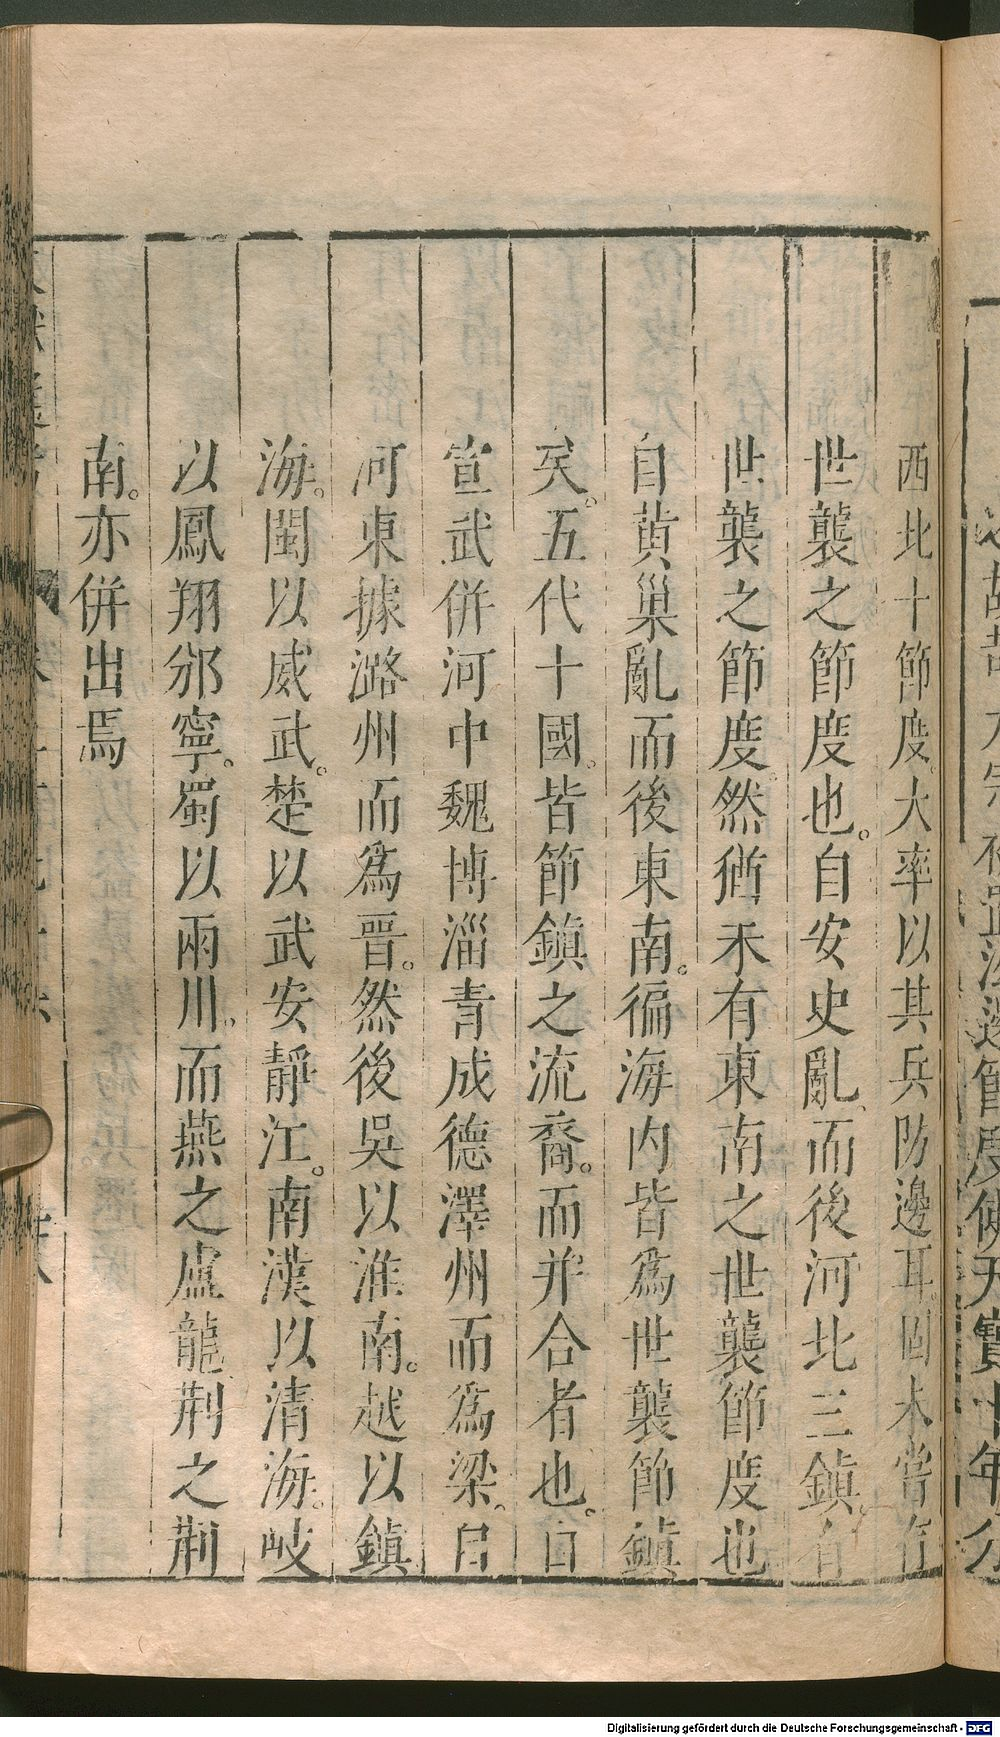 西北十節度。大率以其兵防邊耳。固未嘗有
世襲之節度也。自安史亂、而後河北三鎮。有
世襲之節度。然猶未有東南之世襲節度也
自黃巢亂而後東南。徧海内皆爲世襲節鎮
矣。五代十國。皆節鎮之流裔。而并合者也。自
宣武併河中魏博淄青成德澤州而爲梁。自
河東據潞州而爲晋。然後吳以淮南。越以鎮
海。閩以威武。楚以武安靜江。南漢以清海。岐
以鳳翔邠寧。蜀以兩川。而燕之盧龍荆之荆
南。亦併出焉
Digitalisierung gefördert durch die Deutsche Forschungsgemeinschaft - DFG